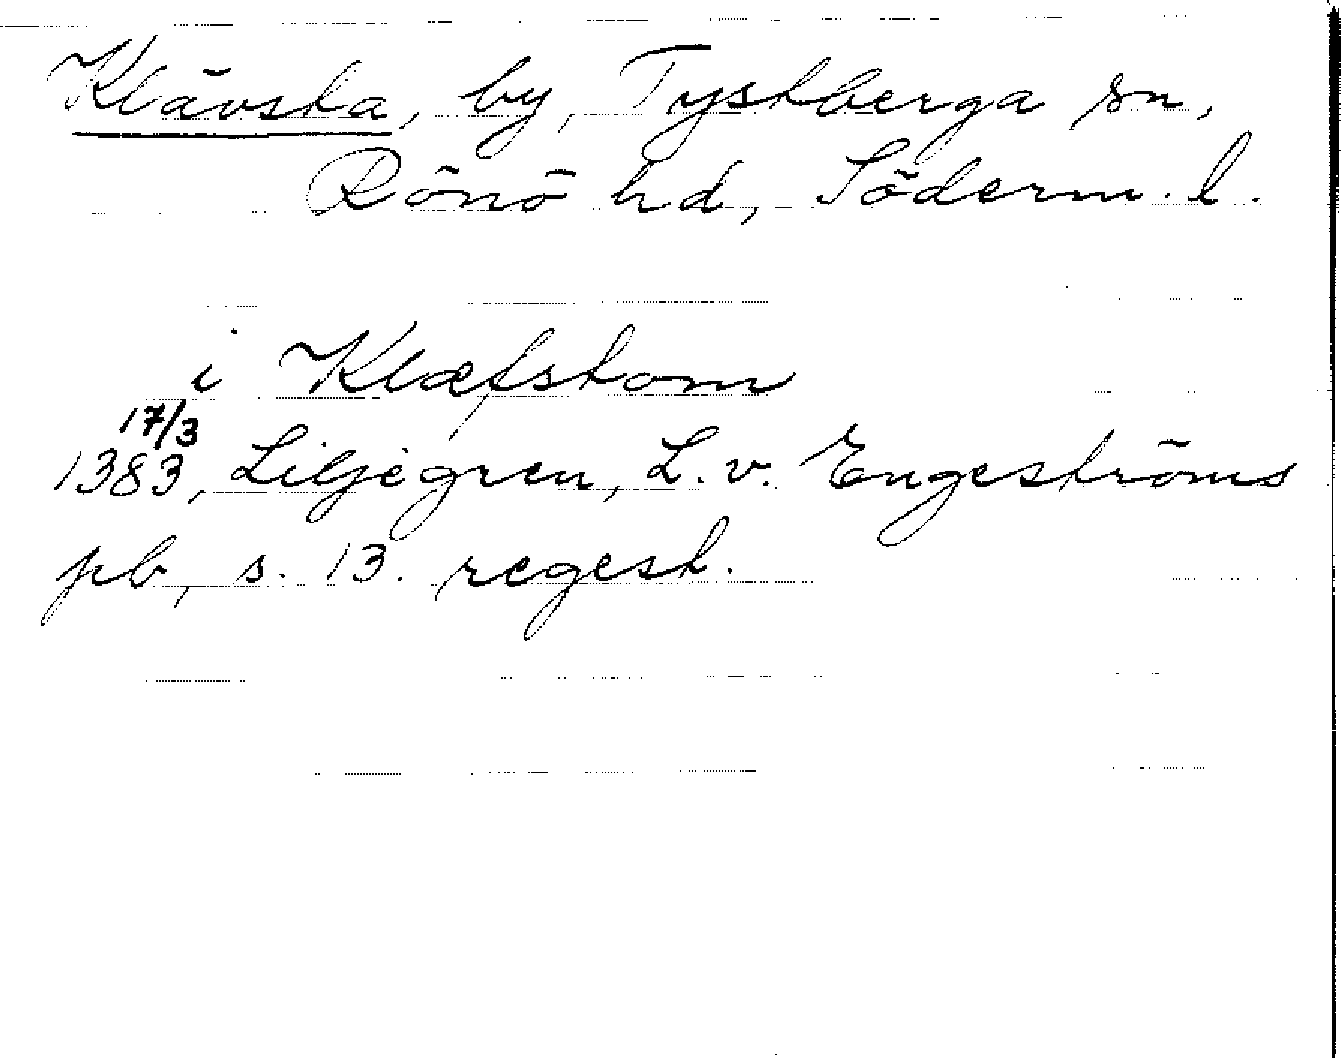 Klävsta, by, Tystberga sn,
Rönö hd, Söderm. l.
i Klæfstom
17/3
1383, Liljegren, L. v. Engeströms
pb, s. 13. regest.